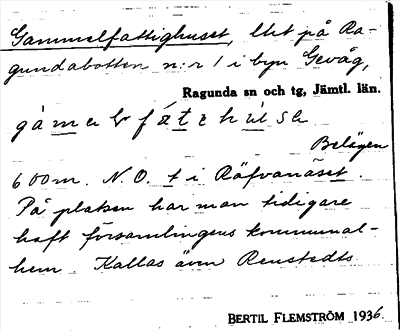 Gammelfattighuset, lht på Ra-
gundabotten n:r 1 i byn Gevåg,
Ragunda sn och tg, Jämtl. län.
Belägen
600 m. N.O. t i Räfvanäset.
På platsen har man tidigare
haft församlingens kommunal-
hem. Kallas även Renstedts
BERTIL FLEMSTRÖM 1936.